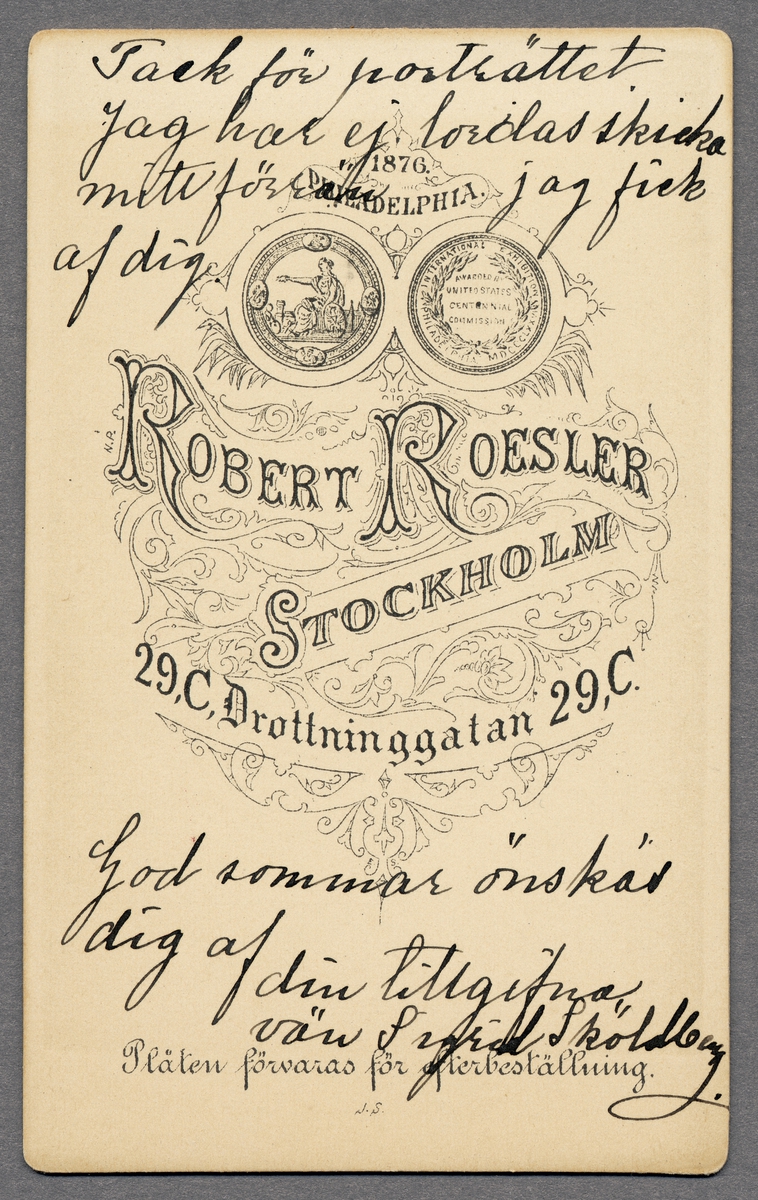 Tack för porträttet
Jag har ej lordas skicka
mitt förrän jag fick
af dig.
1876.
PHILADELPHIA.
INTERNATIONAL EXHIBITION
PHILADELPHIA, MDCCCLXXVI
AWARDED BY
UNITED STATES
CENTENNIAL
COMMISSION
N.P.
ROBERT ROESLER
STOCKHOLM
29,C, Drottninggatan 29,C.
God sommar önskas
dig af
din tillgifna
vän Sigrid Sköldberg.
Plåten förvaras för efterbeställning.
J.S.